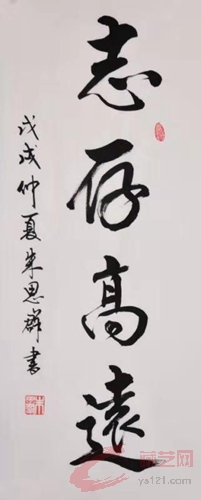 志存高遠
戊戌仲夏朱思群書
藏艺网
ys121.com